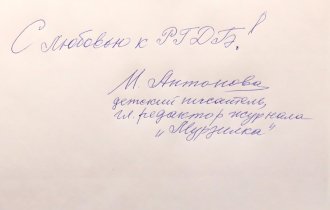 С любовью к РГДБ!
М Антонова
детский писатель,
гл. редактор журнала
"Мурзилка"